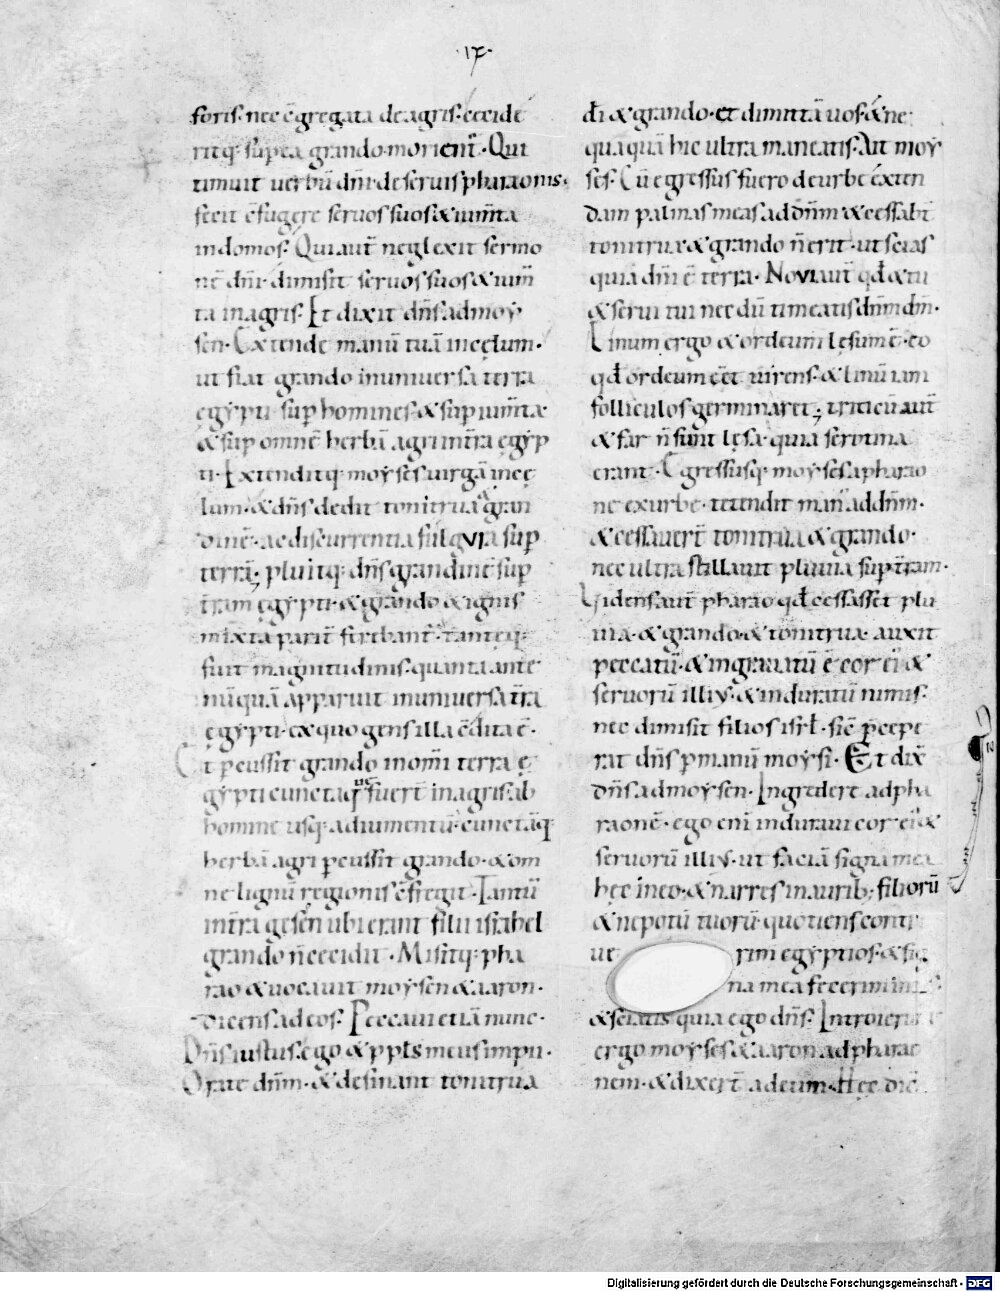 ·17·
foris· nec c̄gregata de agris· cecide
ritq; sup ea grando· morient̄· Qui
timuit uerbū dn̄i· de seruis pharaonis·
fecit c̄fugere seruos suos & ium̄ta
in domos· Qui aut̄ neglexit sermo
nē dn̄i· dimisit seruos suos & ium̄
ta in agris· Et dixit dn̄s ad moy
sen· Extende manū tuā in cęlum·
ut fiat grando in uniuersa terra
ęgypti sup̄ homines· & sup̄ ium̄ta·
& sup̄ omnē herbā agri in tr̄a ęgyp
ti· Extenditq; moyses uirgā in cę
lum· & dn̄s dedit tonitrua & gran
dinē· ac discurrentia fulgura sup̄
terrā; pluitq; dn̄s grandinē sup̄
tr̄am ęgypti· & grando & ignis
mixta parit̄ ferebant̄· tantęq;
fuit magnitudinis· quanta ante
nūquā apparuit in uniuersa tr̄a
ęgypti· ex quo gens illa c̄dita ē·
Et p̄cussit grando in om̄i terra ę
gypti cuncta quę fuer̄t in agris ab
homine usq; ad iumentū· cunctāq;
herbā agri p̄cussit grando· & om
ne lignū regionis c̄fregit· Tantū
in tr̄a gesen ubi erant filii israhel
grando n̄ cecidit· Misitq; pha
rao & uocauit moysen & aaron·
dicens ad eos· Peccaui etiā nunc·
Dn̄s iustus· ego & pp̄ls meus impii·
Orate dn̄m· & desinant tonitrua
dī & grando· et dimittā uos· & ne
quaquā hic ultra maneatis· Ait moy
ses· Cū egressus fuero de urbe exten
dam palmas meas ad dn̄m & cessabt̄
tonitrua· & grando n̄ erit· ut scias
quia dn̄i ē terra· Noui aut̄ qđ & tu
& serui tui necdū timeatis dn̄m dm̄·
Linum ergo & ordeum lęsum ē· eo
qđ ordeum eēt uirens· & linū iam
folliculos germinaret; triticū aut̄
& far n̄ sunt lęsa· quia serotina
erant· Egressusq; moyses a pharao
ne ex urbe· tetendit man ad dn̄m·
& cessauer̄t tonitrua & grando·
nec ultra stillauit pluuia sup̄ tr̄am·
Uidens aut̄ pharao qđ cessasset plu
uia· & grando· & tonitrua· auxit
peccatū· & ingrauatū ē cor ei· &
seruorū illius· & induratū nimis·
nec dimisit filios isrł· sic̄ p̄cepe
rat dn̄s p̄ manū moysi· Et dix̄
dn̄s ad moysen· Ingredere ad pha
raonē· ego eni indurauı cor ei· &
seruorū illius· ut faciā signa mea
hęc in eo· & narres in aurib; filiorū
& nepotū tuorū· quotiens contr
ut rim egyptios· & sig
na mea fecerim in
& sciatis quia ego dn̄s· Introierūt
ergo moyses & aaron ad pharao
nem· & dixer̄t ad eum· Hęc dic̄
Digitalisierung gefördert durch die Deutsche Forschungsgemeinschaft - DFG